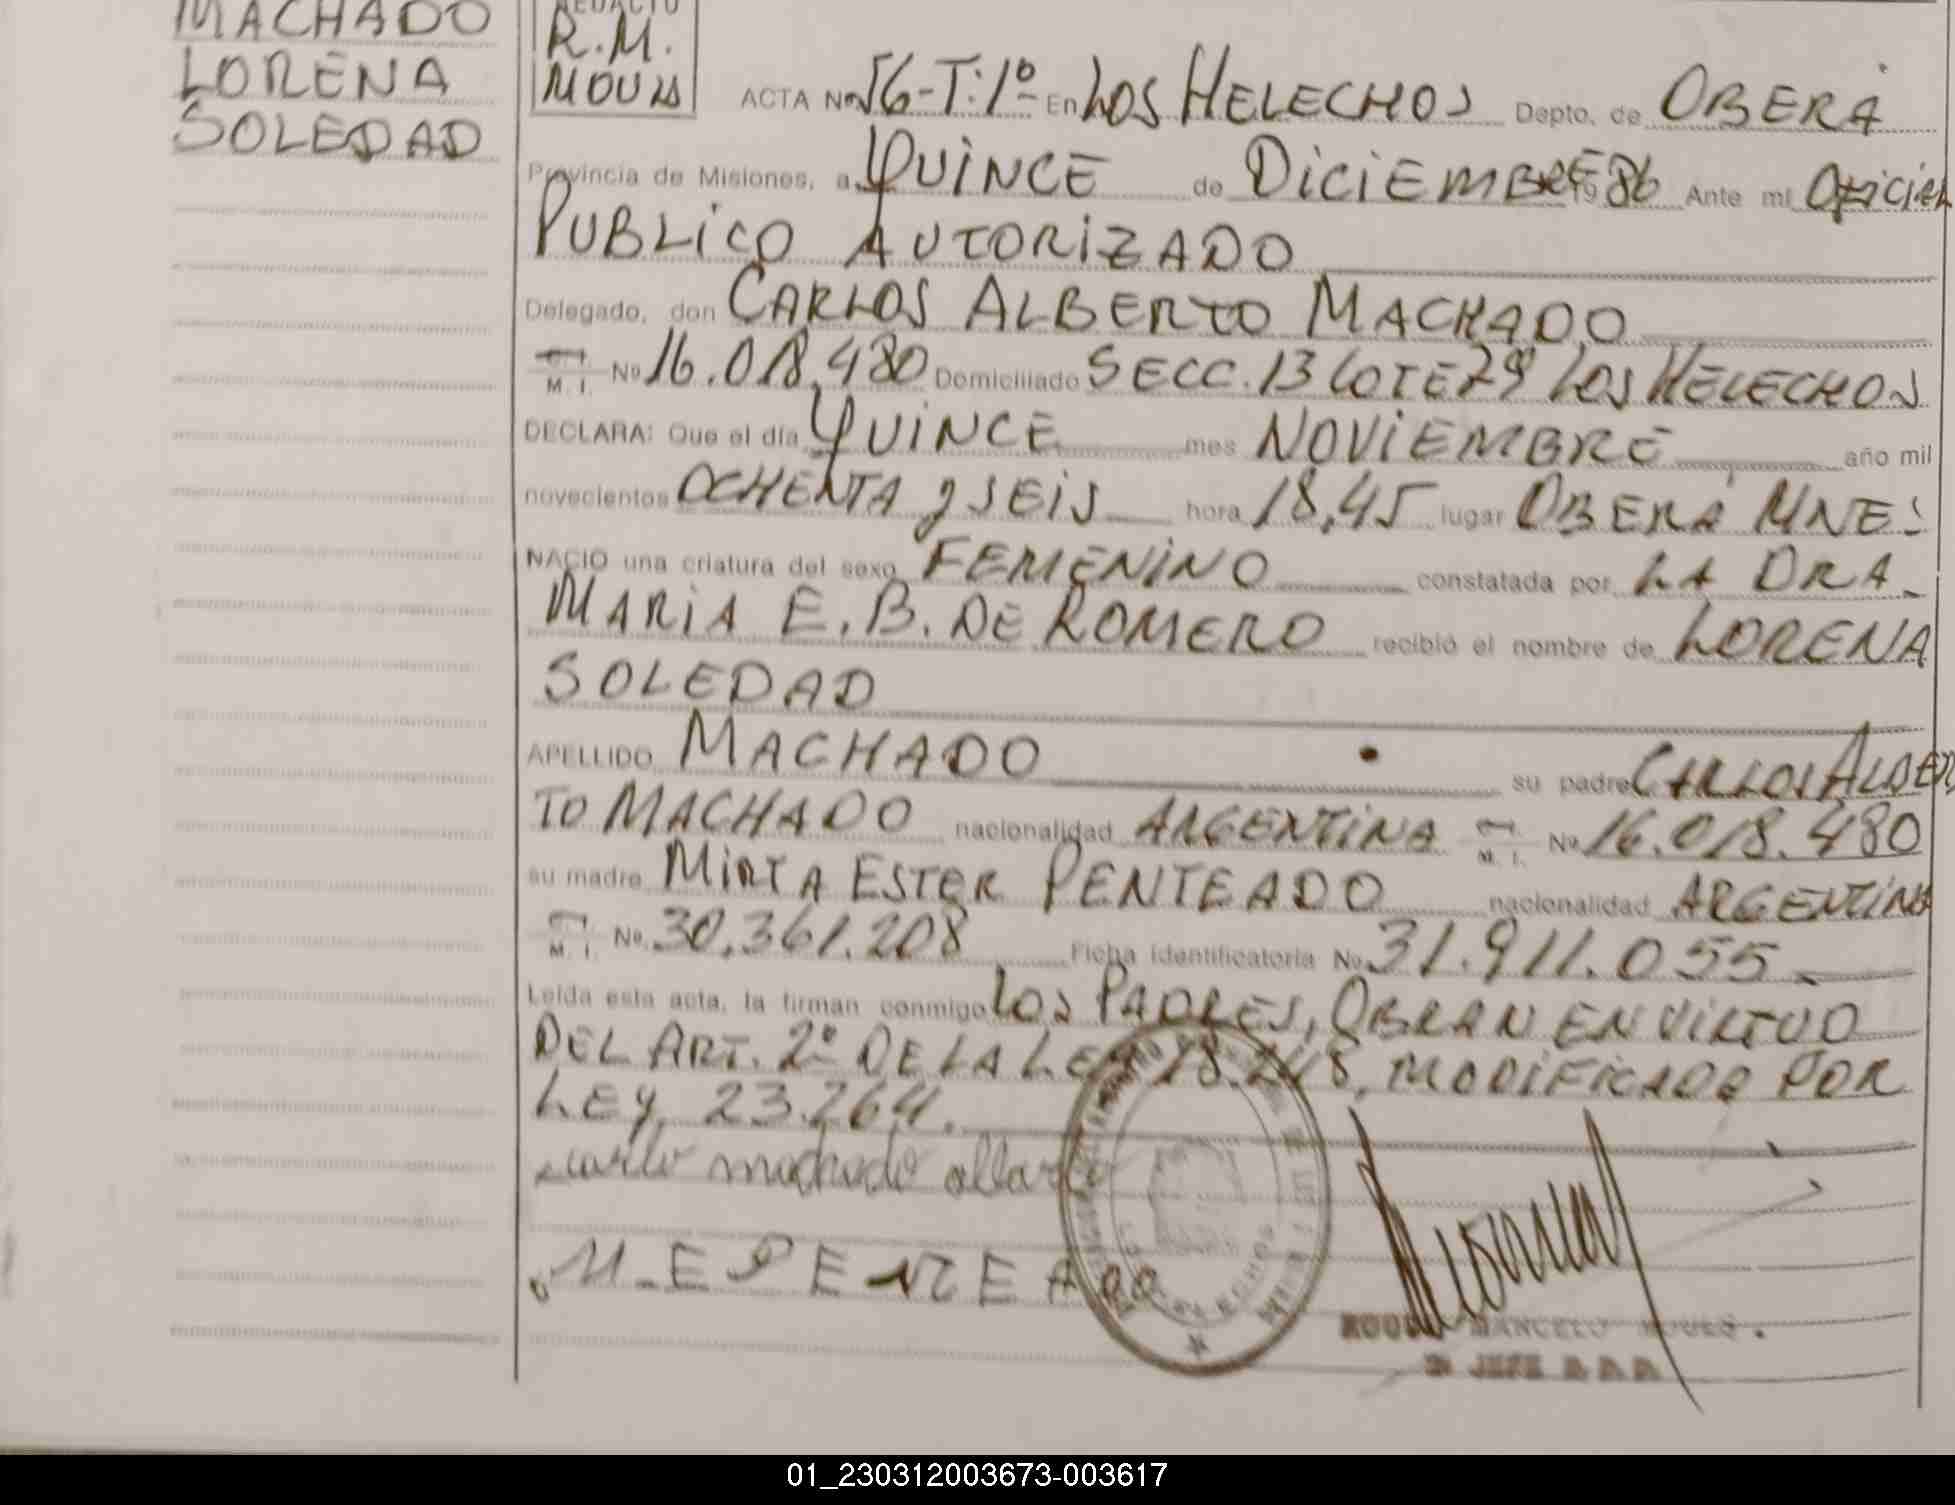 MACHADO
LORENA
SOLEDAD
REDACTO
R.M.
MOULO
ACTA No 56-T:1º En LOS HELECHOS Depto. de OBERÁ
Provincia de Misiones, a QUINCE de DICIEMBRE 1986 Ante mi OFICIAL
PUBLICO AUTORIZADO
Delegado, don CARLOS ALBERTO MACHADO
M. I. No 16.018.480 Domiciliado SECC. 13 LOTE 79 LOS HELECHOS
DECLARA: Que el día QUINCE mes NOVIEMBRE año mil
novecientos OCHENTA y SEIS hora 18,45 lugar OBERÁ MNES
NACIO una criatura del sexo FEMENINO constatada por LA DRA.
MARIA E. B. DE ROMERO recibió el nombre de LORENA
SOLEDAD
APELLIDO MACHADO su padre CARLOS ALBER
TO MACHADO nacionalidad ARGENTINA M. I. No 16.018.480
su madre MIRTA ESTER PENTEADO nacionalidad ARGENTINA
M. I. No. 30.361.208 Ficha identificatoria No 31.911.055
Leída esta acta, la firman conmigo LOS PADRES, OBRAN EN VIRTUD
DEL ART. 2º DE LA LEY 18.248, MODIFICADO POR
LEY 23.264.
carlo machado
M-E PENTEADO
HELECHOS
MARCELO
JEFE
01_230312003673-003617